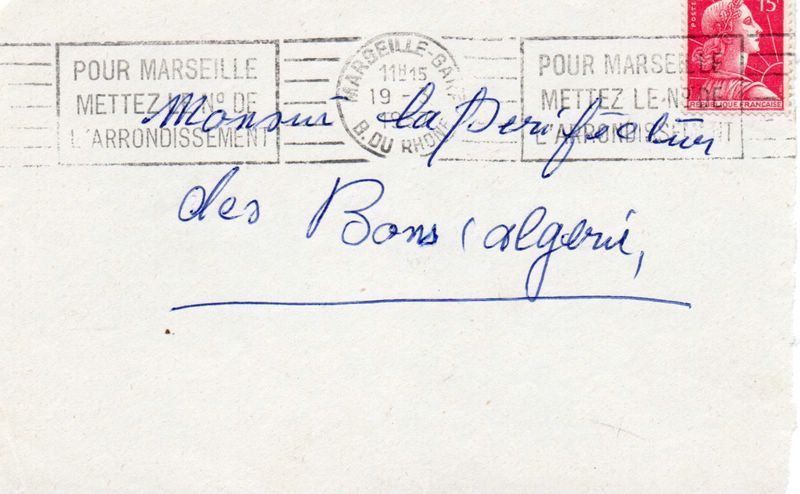 POSTES
15F
MARSEILLE-GARE
11H15
19 -
B. DU RHONE
POUR MARSEILLE
METTEZ LE No DE
L'ARRONDISSEMENT
POUR MARSEILLE
METTEZ LE No DE
L'ARRONDISSEMENT
REPUBLIQUE FRANÇAISE
Monsieur la
des Bons (algerie,